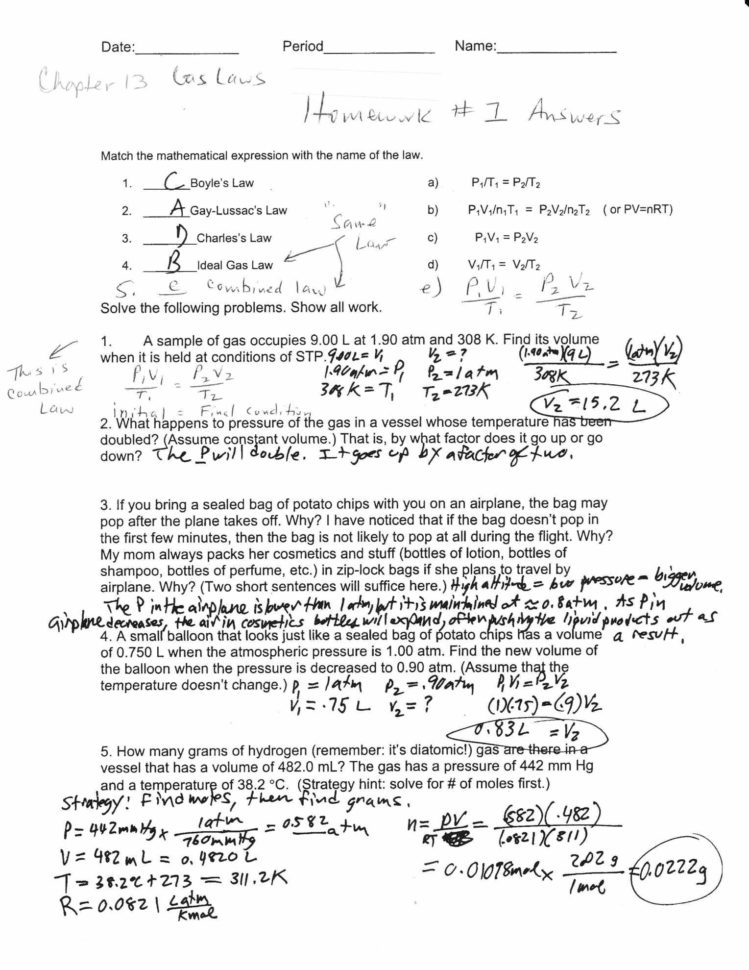 Date:______________ Period______________ Name:________________
Chapter 13 Gas Laws
Homework # 1 Answers
Match the mathematical expression with the name of the law.
1. C Boyle's Law a) P₁/T₁ = P₂/T₂
2. A Gay-Lussac's Law " " b) P₁V₁/n₁T₁ = P₂V₂/n₂T₂ ( or PV=nRT)
Same
Law
3. D Charles's Law c) P₁V₁ = P₂V₂
4. B Ideal Gas Law d) V₁/T₁ = V₂/T₂
5. e Combined law e) P₁V₁/T₁ = P₂V₂/T₂
Solve the following problems. Show all work.
This is
Combined
Law
1. A sample of gas occupies 9.00 L at 1.90 atm and 308 K. Find its volume
when it is held at conditions of STP. 9.00L = V₁ V₂ = ? (1.90atm)(9L)/308K = (1atm)(V₂)/273K
P₁V₁/T₁ = P₂V₂/T₂ 1.90atm = P₁ P₂ = 1atm
308K = T₁ T₂ = 273K V₂ = 15.2 L
initial = Final condition
2. What happens to pressure of the gas in a vessel whose temperature has been
doubled? (Assume constant volume.) That is, by what factor does it go up or go
down? The P will double. It goes up by a factor of two.
3. If you bring a sealed bag of potato chips with you on an airplane, the bag may
pop after the plane takes off. Why? I have noticed that if the bag doesn't pop in
the first few minutes, then the bag is not likely to pop at all during the flight. Why?
My mom always packs her cosmetics and stuff (bottles of lotion, bottles of
shampoo, bottles of perfume, etc.) in zip-lock bags if she plans to travel by
airplane. Why? (Two short sentences will suffice here.) High altitude = low pressure = bigger volume.
The P in the airplane is lower than 1 atm, but it is maintained at ≈ 0.8 atm. As P in
airplane decreases, the air in cosmetics bottles will expand, often pushing the liquid products out as
a result.
4. A small balloon that looks just like a sealed bag of potato chips has a volume
of 0.750 L when the atmospheric pressure is 1.00 atm. Find the new volume of
the balloon when the pressure is decreased to 0.90 atm. (Assume that the
temperature doesn't change.) P₁ = 1atm P₂ = .90atm P₁V₁ = P₂V₂
V₁ = .75 L V₂ = ? (1)(.75) = (.9)V₂
0.83L = V₂
5. How many grams of hydrogen (remember: it's diatomic!) gas are there in a
vessel that has a volume of 482.0 mL? The gas has a pressure of 442 mm Hg
and a temperature of 38.2 °C. (Strategy hint: solve for # of moles first.)
Strategy! Find moles, then find grams.
P = 442mmHg x 1atm/760mmHg = 0.582 atm n = PV/RT = (.582)(.482)/(.0821)(311)
V = 482 mL = 0.4820 L = 0.01098mol x 2.02 g/1mol = 0.0222g
T = 38.2°C + 273 = 311.2K
R = 0.0821 Latm/Kmol